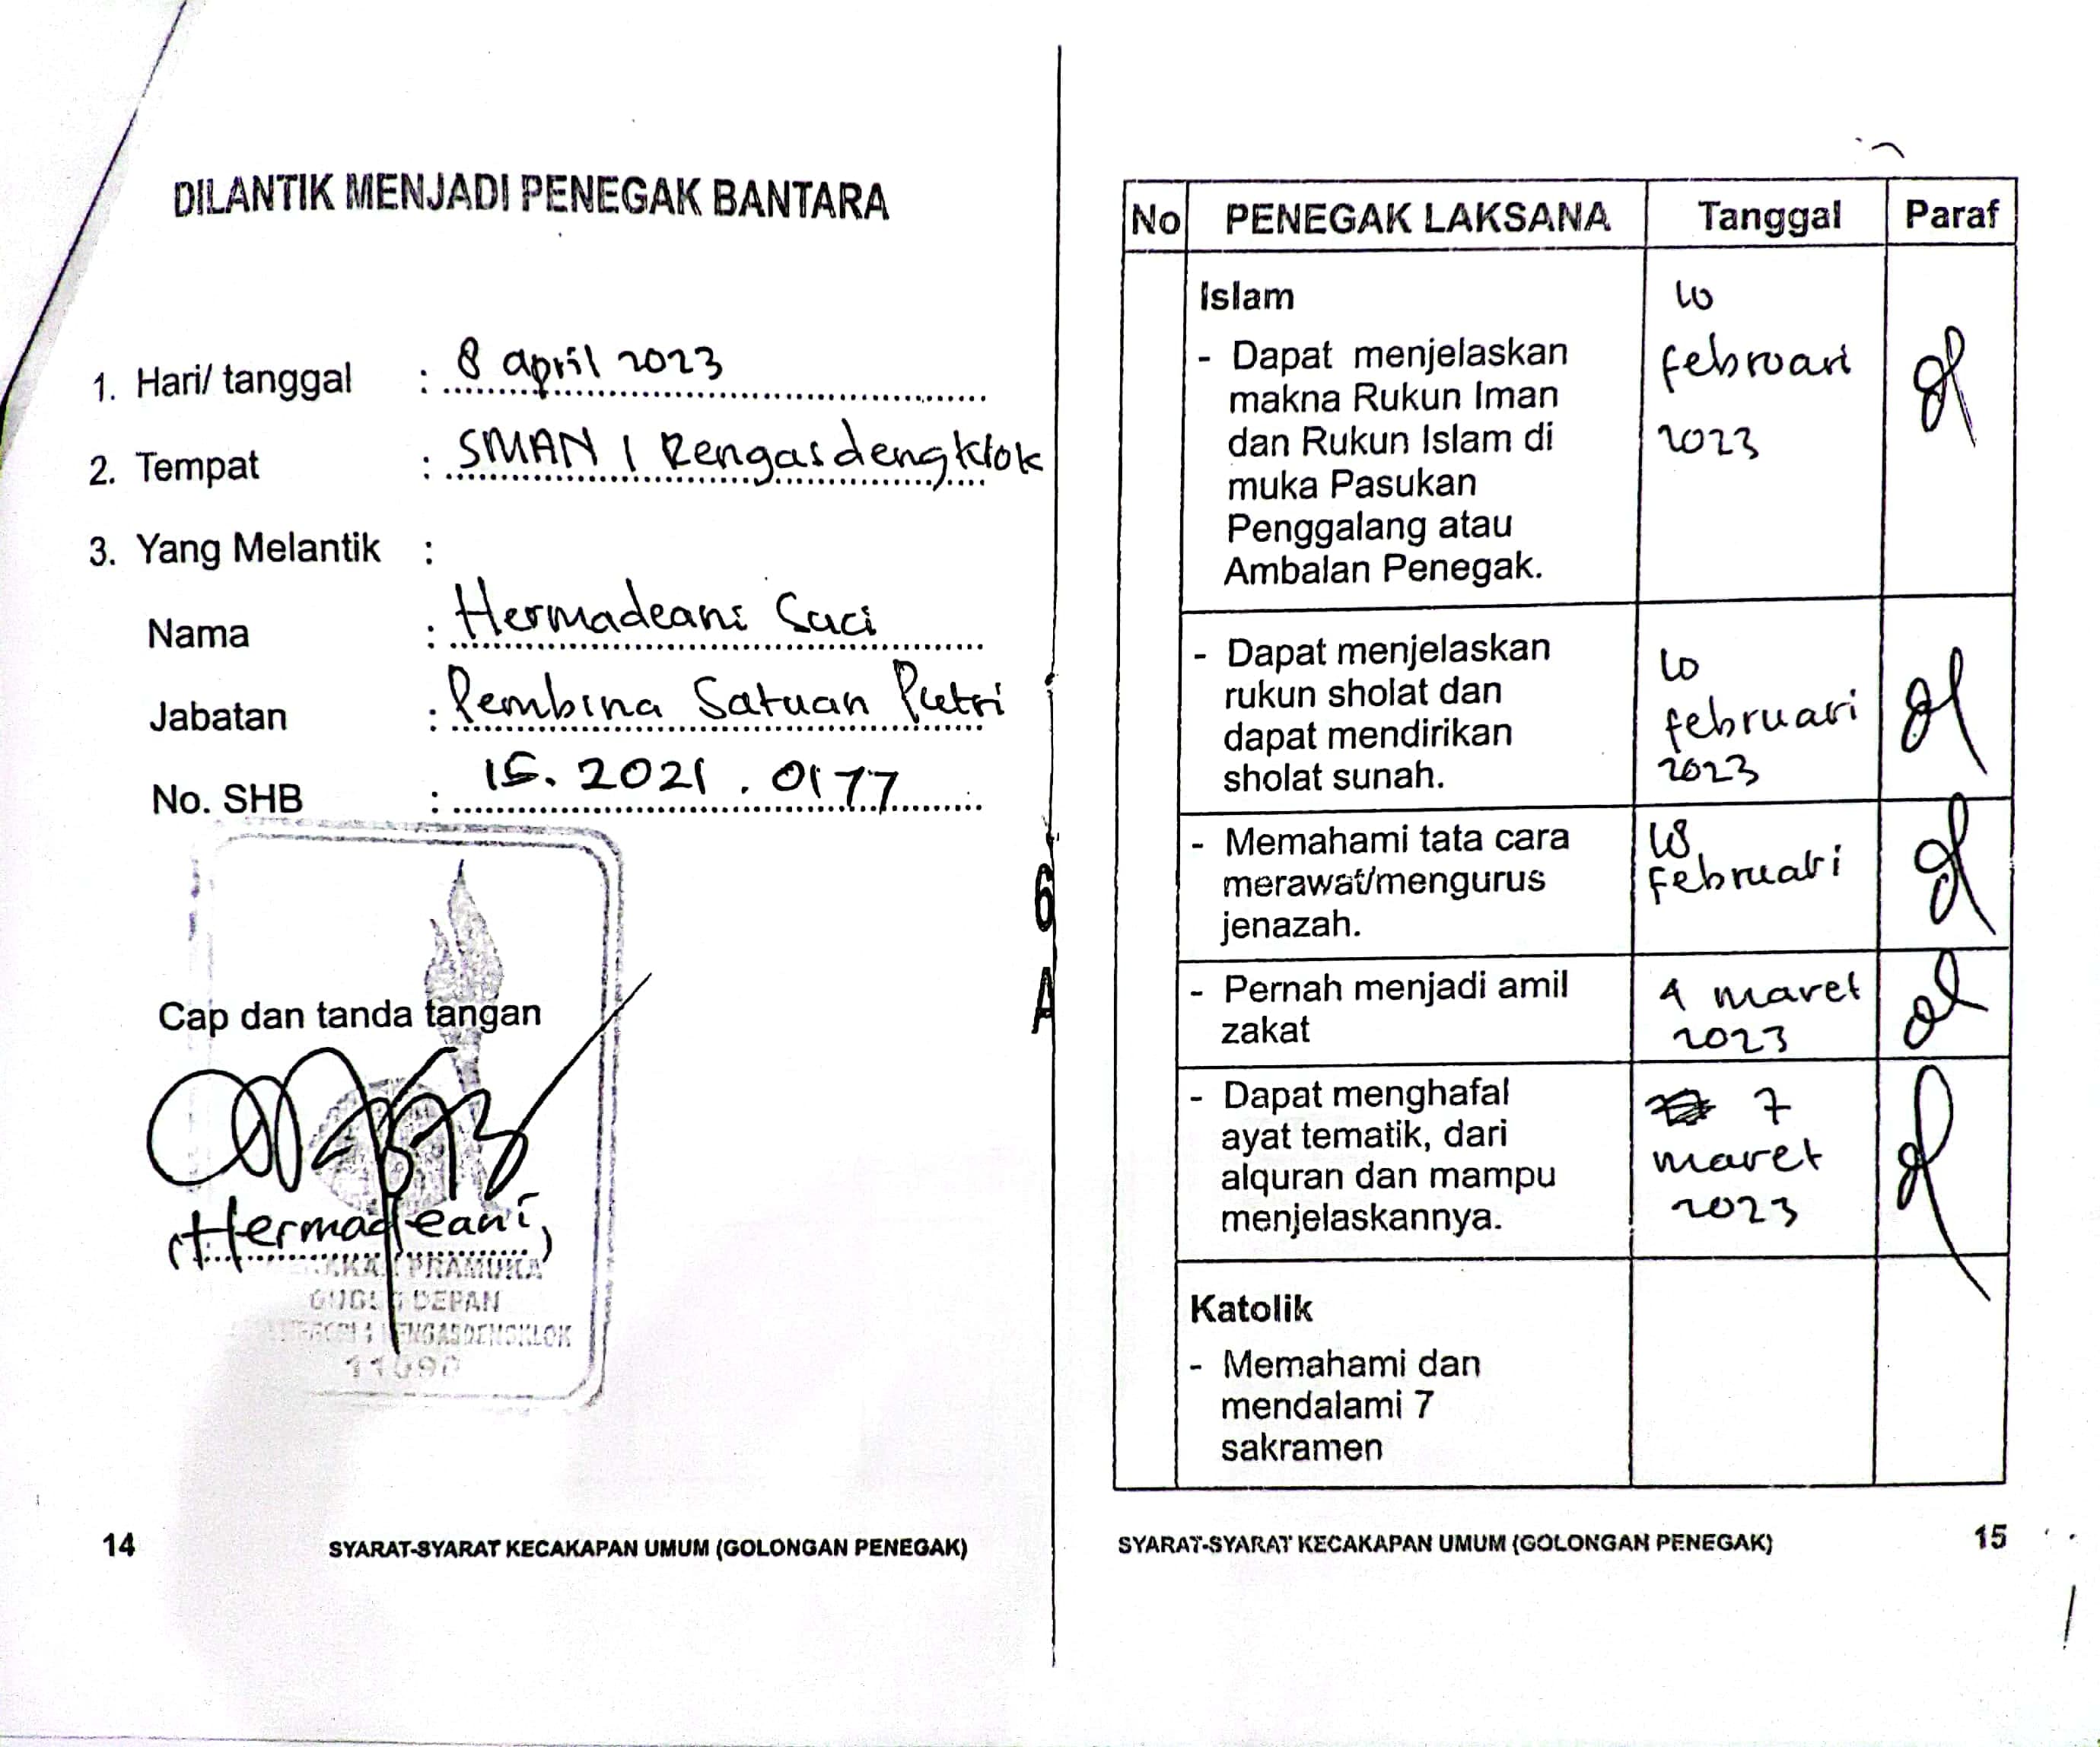 DILANTIK MENJADI PENEGAK BANTARA
1. Hari/ tanggal : 8 april 2023
2. Tempat : SMAN 1 Rengasdengklok
3. Yang Melantik :
Nama : Hermadeani Suci
Jabatan : Pembina Satuan Putri
No. SHB : 15. 2021 . 0177
Cap dan tanda tangan
(Hermadeani)
PRAMUKA
GUGUS DEPAN
RENGASDENGKLOK
14
SYARAT-SYARAT KECAKAPAN UMUM (GOLONGAN PENEGAK)
6
A
No PENEGAK LAKSANA Tanggal Paraf
Islam
- Dapat menjelaskan
makna Rukun Iman
dan Rukun Islam di
muka Pasukan
Penggalang atau
Ambalan Penegak.
10
februari
2023
- Dapat menjelaskan
rukun sholat dan
dapat mendirikan
sholat sunah.
10
februari
2023
- Memahami tata cara
merawat/mengurus
jenazah.
18
februari
- Pernah menjadi amil
zakat
4 maret
2023
- Dapat menghafal
ayat tematik, dari
alquran dan mampu
menjelaskannya.
7
maret
2023
Katolik
- Memahami dan
mendalami 7
sakramen
SYARAT-SYARAT KECAKAPAN UMUM (GOLONGAN PENEGAK)
15